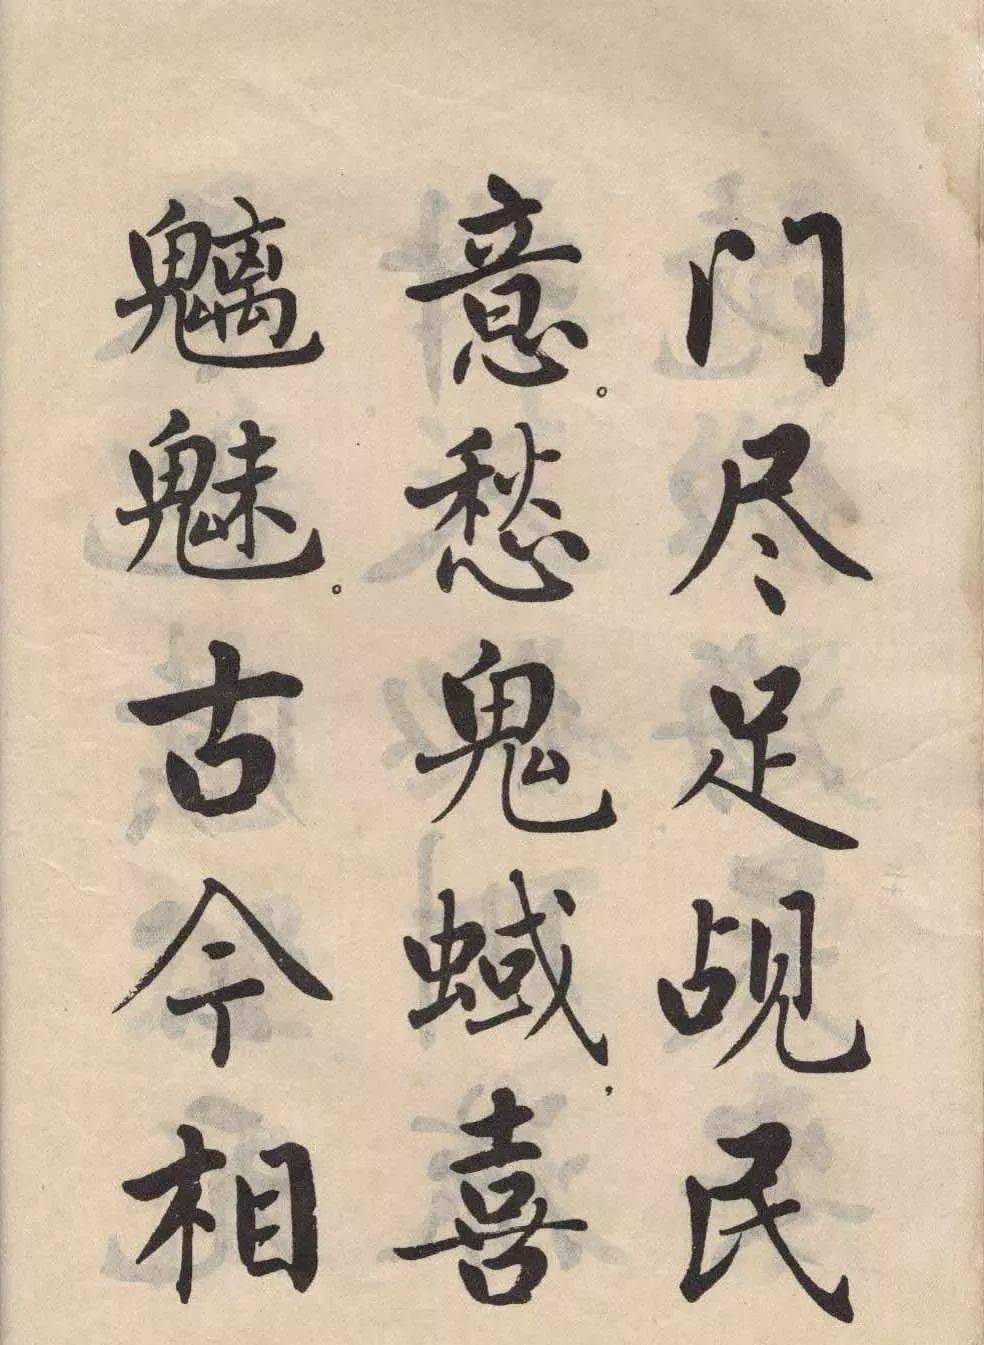 门尽足觇民
意。愁鬼蜮，喜
魑魅。古今相